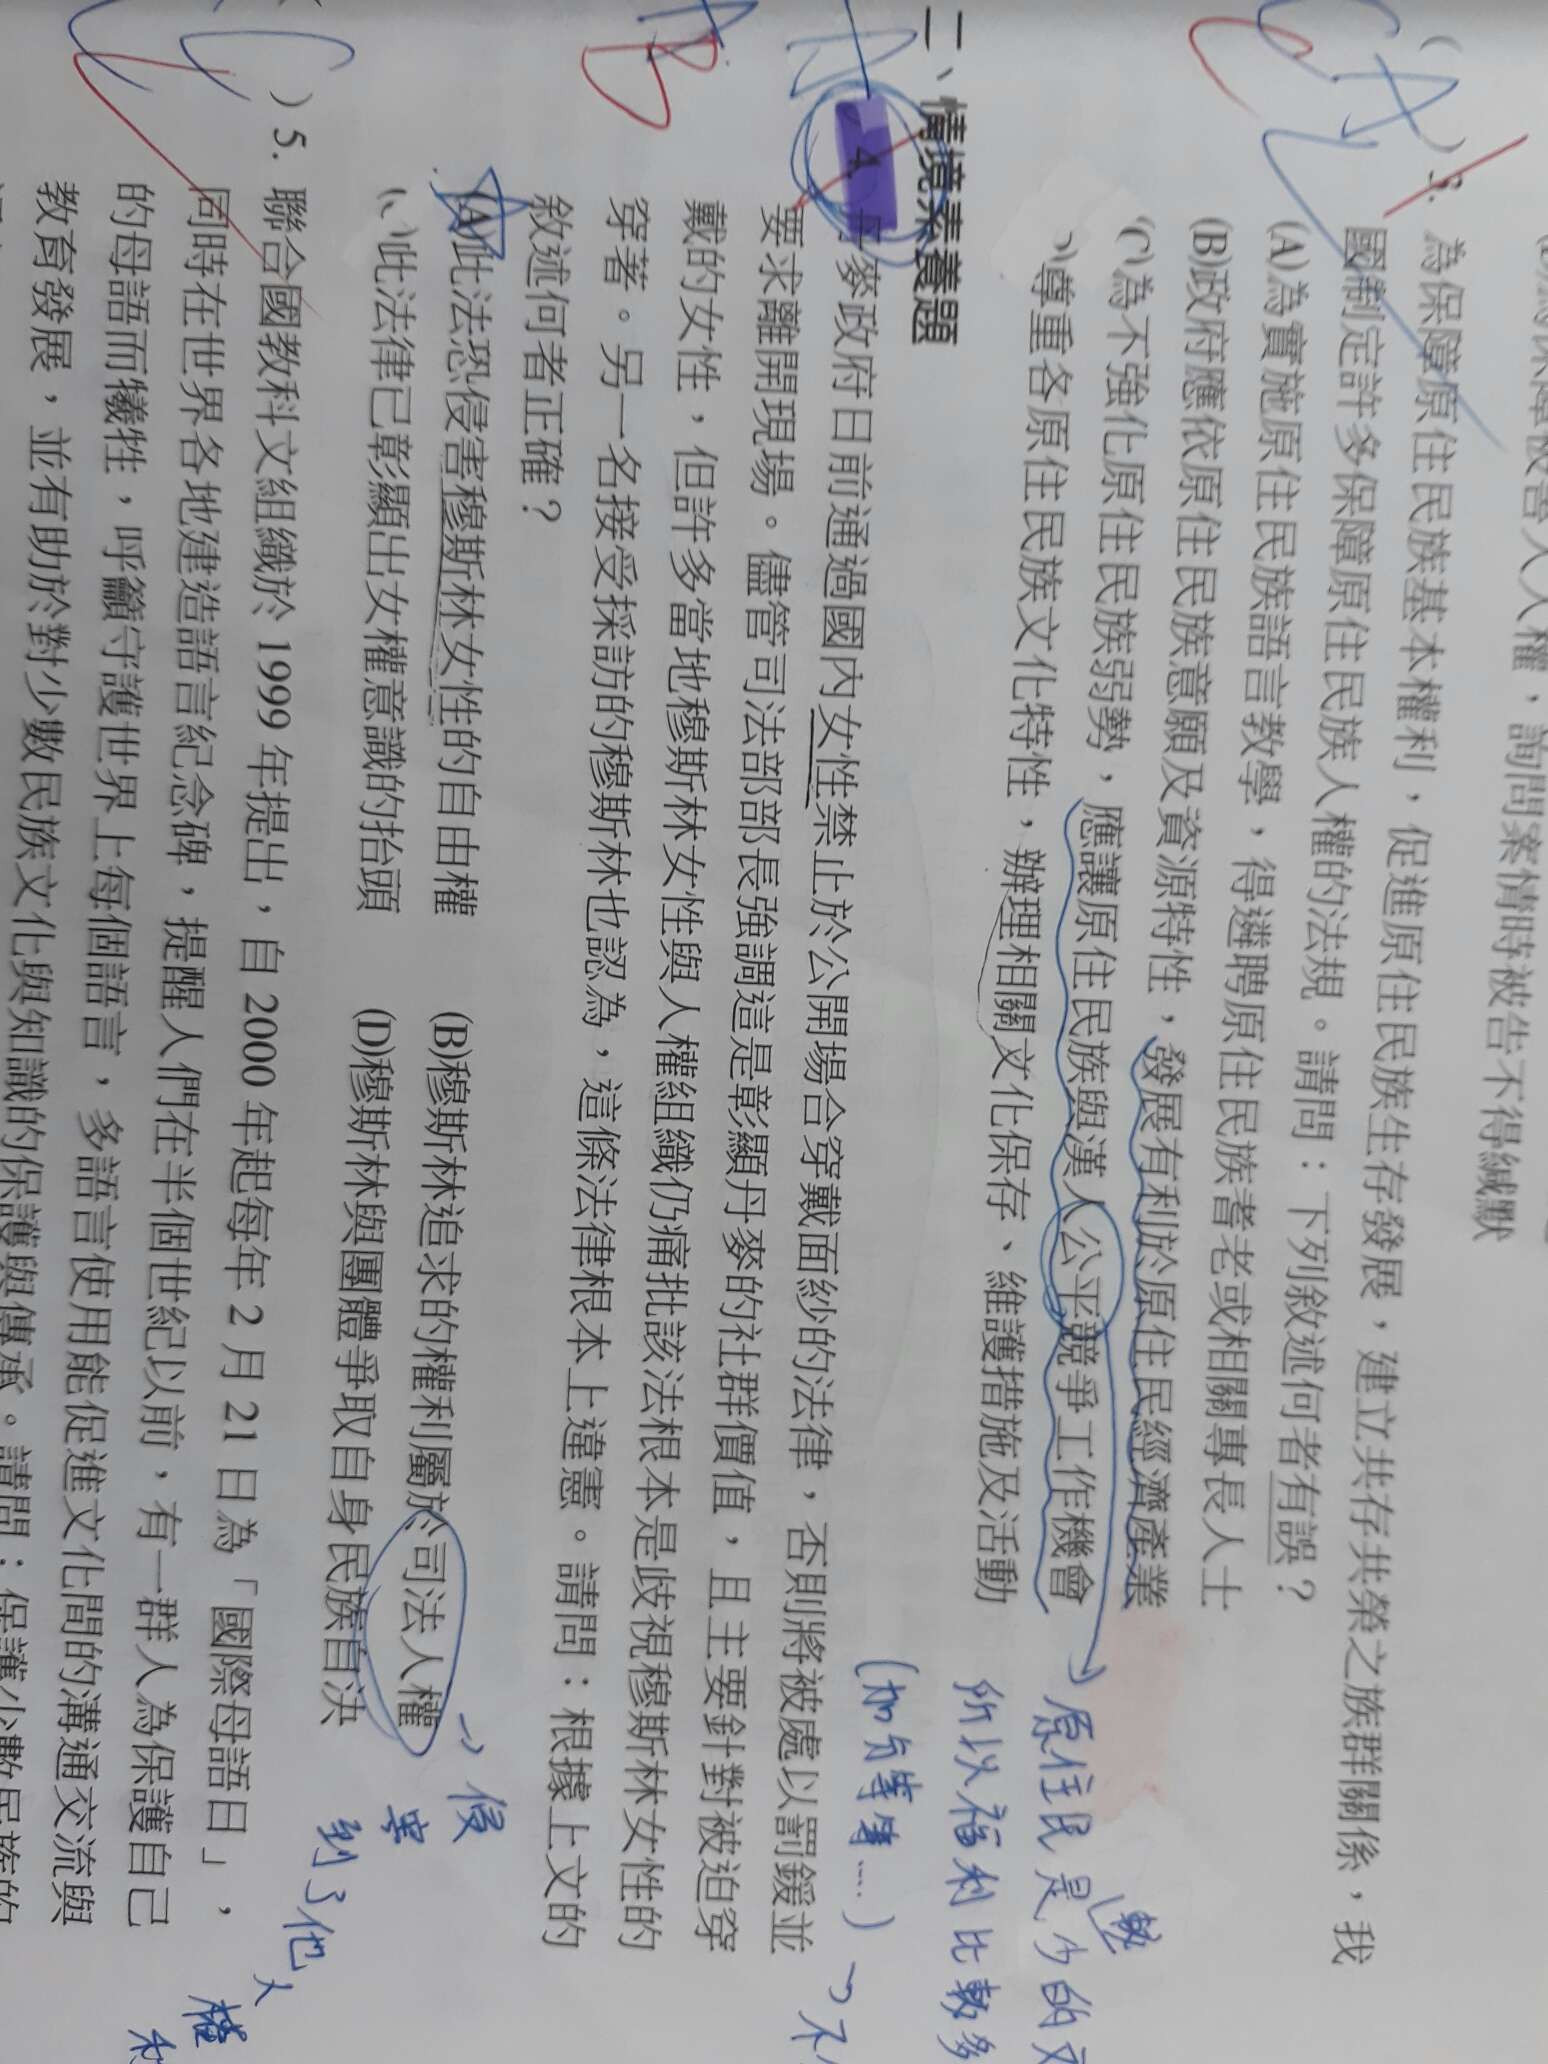 詢問案情時被告不得緘默
( A ) 3. 為保障原住民族基本權利，促進原住民族生存發展，建立共存共榮之族群關係，我
國制定許多保障原住民族人權的法規。請問：下列敘述何者有誤？
(A)為實施原住民族語言教學，得遴聘原住民族耆老或相關專長人士
(B)政府應依原住民族意願及資源特性，發展有利於原住民經濟產業
(C)為不強化原住民族弱勢，應讓原住民族與漢人公平競爭工作機會
)尊重各原住民族文化特性，辦理相關文化保存、維護措施及活動
原住民是少
勢
所以福利比較多
(加分等等……)
二、情境素養題
4. 丹麥政府日前通過國內女性禁止於公開場合穿戴面紗的法律，否則將被處以罰鍰並
要求離開現場。儘管司法部部長強調這是彰顯丹麥的社群價值，且主要針對被迫穿
戴的女性，但許多當地穆斯林女性與人權組織仍痛批該法根本是歧視穆斯林女性的
穿著。另一名接受採訪的穆斯林也認為，這條法律根本上違憲。請問：根據上文的
敘述何者正確？
B
(A)此法恐侵害穆斯林女性的自由權 (B)穆斯林追求的權利屬於司法人權
)此法律已彰顯出女權意識的抬頭 (D)穆斯林與團體爭取自身民族自決
侵
害
到了他人
權
( C ) 5. 聯合國教科文組織於 1999 年提出，自 2000 年起每年 2 月 21 日為「國際母語日」，
同時在世界各地建造語言紀念碑，提醒人們在半個世紀以前，有一群人為保護自己
的母語而犧牲，呼籲守護世界上每個語言，多語言使用能促進文化間的溝通交流與
教育發展，並有助於對少數民族文化與知識的保護與傳承。請問：保護少數民族的